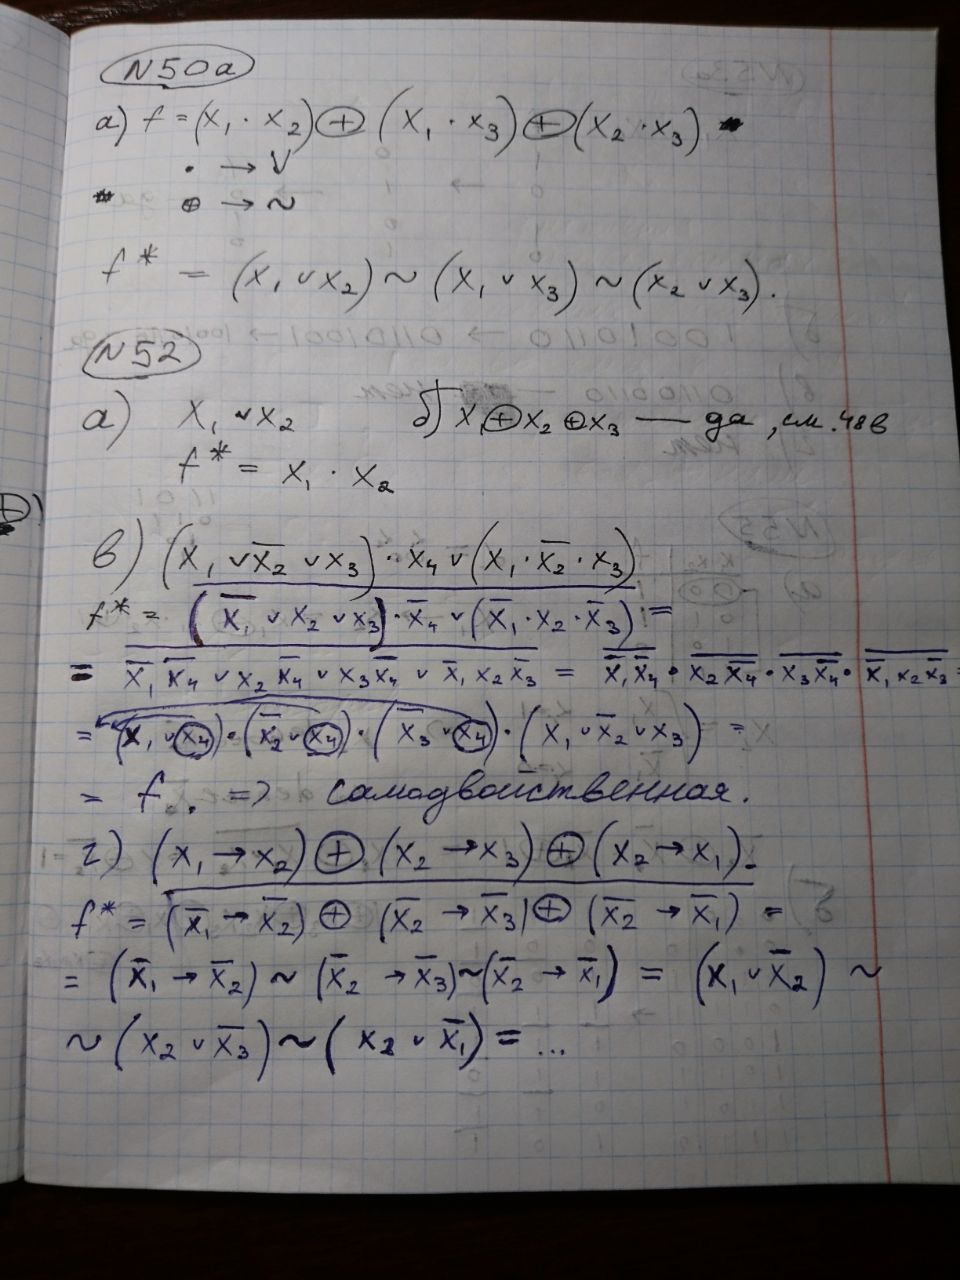 N50а
а) f = (x₁ · x₂) ⊕ (x₁ · x₃) ⊕ (x₂ · x₃)
· → ∨
⊕ → ~
f* = (x₁ ∨ x₂) ~ (x₁ ∨ x₃) ~ (x₂ ∨ x₃).
N52
а) x₁ ∨ x₂ б) x₁ ⊕ x₂ ⊕ x₃ — да, см. 48в
f* = x₁ · x₂
в) (x₁ ∨ x̄₂ ∨ x₃) · x₄ ∨ (x₁ · x̄₂ · x₃)
f* = (x̄₁ ∨ x₂ ∨ x₃) · x̄₄ ∨ (x̄₁ · x₂ · x̄₃) =
= x̄₁ x̄₄ ∨ x₂ x̄₄ ∨ x₃ x̄₄ ∨ x̄₁ x₂ x̄₃ = x̄₁ x̄₄ · x₂ x̄₄ · x₃ x̄₄ · x̄₁ x₂ x̄₃ =
= (x₁ ∨ x₄) · (x̄₂ ∨ x₄) · (x̄₃ ∨ x₄) · (x₁ ∨ x̄₂ ∨ x₃) =
= f. => самодвойственная.
г) (x₁ → x₂) ⊕ (x₂ → x₃) ⊕ (x₂ → x₁).
f* = (x̄₁ → x̄₂) ⊕ (x̄₂ → x̄₃) ⊕ (x̄₂ → x̄₁) =
= (x̄₁ → x̄₂) ~ (x̄₂ → x̄₃) ~ (x̄₂ → x̄₁) = (x₁ ∨ x̄₂) ~
~ (x₂ ∨ x̄₃) ~ (x₂ ∨ x̄₁) = ...